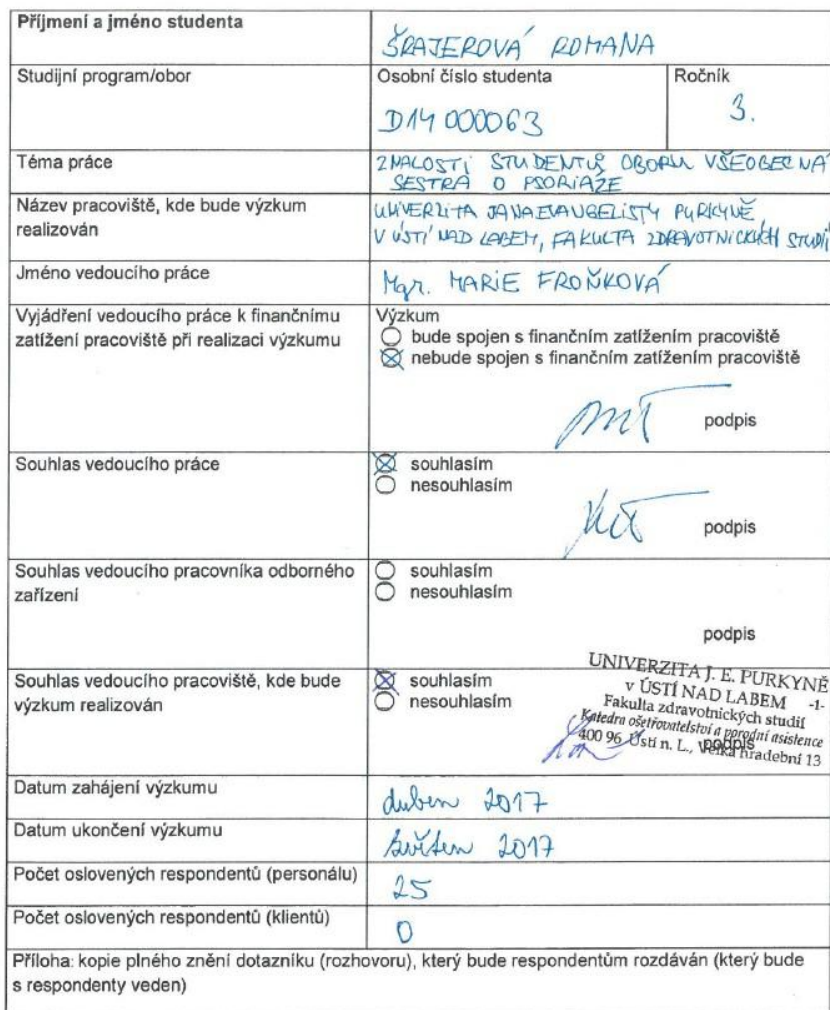 Příjmení a jméno studenta
ŠRAJEROVÁ ROMANA
Studijní program/obor
Osobní číslo studenta
D14 000063
Ročník
3.
Téma práce
ZNALOSTI STUDENTŮ OBORU VŠEOBECNÁ
SESTRA O PSORIÁZE
Název pracoviště, kde bude výzkum
realizován
UNIVERZITA JANA EVANGELISTY PURKYNĚ
V ÚSTÍ NAD LABEM, FAKULTA ZDRAVOTNICKÝCH STUDIÍ
Jméno vedoucího práce
Mgr. MARIE FROŇKOVÁ
Vyjádření vedoucího práce k finančnímu
zatížení pracoviště při realizaci výzkumu
Výzkum
bude spojen s finančním zatížením pracoviště
nebude spojen s finančním zatížením pracoviště
podpis
Souhlas vedoucího práce
souhlasím
nesouhlasím
podpis
Souhlas vedoucího pracovníka odborného
zařízení
souhlasím
nesouhlasím
podpis
Souhlas vedoucího pracoviště, kde bude
výzkum realizován
souhlasím
nesouhlasím
UNIVERZITA J. E. PURKYNĚ
v ÚSTÍ NAD LABEM -1-
Fakulta zdravotnických studií
Katedra ošetřovatelství a porodní asistence
400 96 Ústí n. L., Velká hradební 13
podpis
Datum zahájení výzkumu
duben 2017
Datum ukončení výzkumu
květen 2017
Počet oslovených respondentů (personálu)
25
Počet oslovených respondentů (klientů)
0
Příloha: kopie plného znění dotazníku (rozhovoru), který bude respondentům rozdáván (který bude
s respondenty veden)